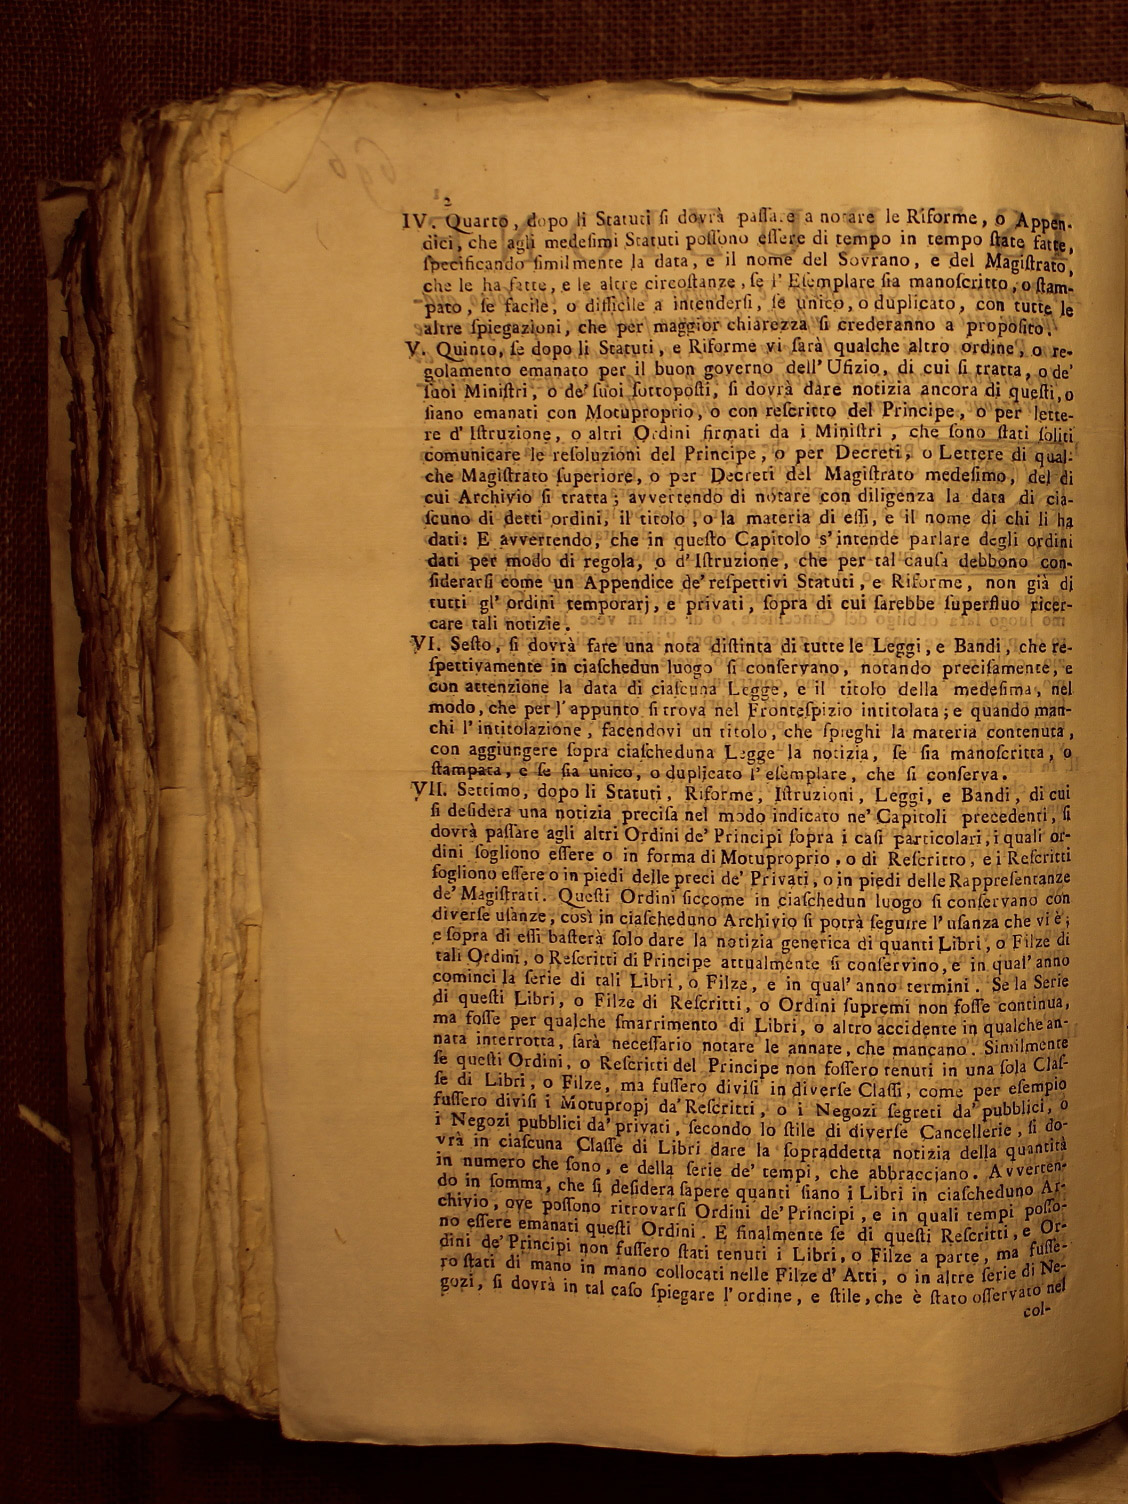 2
IV. Quarto, dopo li Statuti ſi dovrà paſſa.e a notare le Riforme, o Appen-
dici, che agli medeſimi Statuti poſſono eſſere di tempo in tempo ſtate fatte,
ſpecificando ſimilmente la data, e il nome del Sovrano, e del Magiſtrato,
che le ha fatte, e le altre circoſtanze, ſe l' Eſemplare ſia manoſcritto, o ſtam-
pato, ſe facile, o difficile a intenderſi, ſe unico, o duplicato, con tutte le
altre ſpiegazioni, che per maggior chiarezza ſi crederanno a propoſito.
V. Quinto, ſe dopo li Statuti, e Riforme vi ſarà qualche altro ordine, o re-
golamento emanato per il buon governo dell' Ufizio, di cui ſi tratta, o de'
ſuoi Miniſtri, o de' ſuoi ſottopoſti, ſi dovrà dare notizia ancora di queſti, o
ſiano emanati con Motuproprio, o con reſcritto del Principe, o per lette-
re d' Iſtruzione, o altri Ordini firmati da i Miniſtri, che ſono ſtati ſoliti
comunicare le reſoluzioni del Principe, o per Decreti, o Lettere di qual-
che Magiſtrato ſuperiore, o per Decreti del Magiſtrato medeſimo, del di
cui Archivio ſi tratta; avvertendo di notare con diligenza la data di cia-
ſcuno di detti ordini, il titolo, o la materia di eſſi, e il nome di chi li ha
dati: E avvertendo, che in queſto Capitolo s' intende parlare degli ordini
dati per modo di regola, o d' Iſtruzione, che per tal cauſa debbono con-
ſiderarſi come un Appendice de' reſpettivi Statuti, e Riforme, non già di
tutti gl' ordini temporarj, e privati, ſopra di cui ſarebbe ſuperfluo ricer-
care tali notizie.
VI. Seſto, ſi dovrà fare una nota diſtinta di tutte le Leggi, e Bandi, che re-
ſpettivamente in ciaſchedun luogo ſi conſervano, notando preciſamente, e
con attenzione la data di ciaſcuna Legge, e il titolo della medeſima, nel
modo, che per l' appunto ſi trova nel Fronteſpizio intitolata; e quando man-
chi l' intitolazione, facendovi un titolo, che ſpieghi la materia contenuta,
con aggiungere ſopra ciaſcheduna Legge la notizia, ſe ſia manoſcritta, o
ſtampata, e ſe ſia unico, o duplicato l' eſemplare, che ſi conſerva.
VII. Settimo, dopo li Statuti, Riforme, Iſtruzioni, Leggi, e Bandi, di cui
ſi deſidera una notizia preciſa nel modo indicato ne' Capitoli precedenti, ſi
dovrà paſſare agli altri Ordini de' Principi ſopra i caſi particolari, i quali or-
dini ſogliono eſſere o in forma di Motuproprio, o di Reſcritto, e i Reſcritti
ſogliono eſſere o in piedi delle preci de' Privati, o in piedi delle Rappreſentanze
de' Magiſtrati. Queſti Ordini ſiccome in ciaſchedun luogo ſi conſervano con
diverſe uſanze, così in ciaſcheduno Archivio ſi potrà ſeguire l' uſanza che vi è;
e ſopra di eſſi baſterà ſolo dare la notizia generica di quanti Libri, o Filze di
tali Ordini, o Reſcritti di Principe attualmente ſi conſervino, e in qual' anno
cominci la ſerie di tali Libri, o Filze, e in qual' anno termini. Se la Serie
di queſti Libri, o Filze di Reſcritti, o Ordini ſupremi non foſſe continua,
ma foſſe per qualche ſmarrimento di Libri, o altro accidente in qualche an-
nata interrotta, ſarà neceſſario notare le annate, che mancano. Similmente
ſe queſti Ordini, o Reſcritti del Principe non foſſero tenuti in una ſola Claſ-
ſe di Libri, o Filze, ma fuſſero diviſi in diverſe Claſſi, come per eſempio
fuſſero diviſi i Motupropj da' Reſcritti, o i Negozi ſegreti da' pubblici, o
i Negozi pubblici da' privati, ſecondo lo ſtile di diverſe Cancellerie, ſi do-
vrà in ciaſcuna Claſſe di Libri dare la ſopraddetta notizia della quantità
in numero che ſono, e della ſerie de' tempi, che abbracciano. Avverten-
do in ſomma, che ſi deſidera ſapere quanti ſiano i Libri in ciaſcheduno Ar-
chivio, ove poſſono ritrovarſi Ordini de' Principi, e in quali tempi poſſo-
no eſſere emanati queſti Ordini. E finalmente ſe di queſti Reſcritti, e Or-
dini de' Principi non fuſſero ſtati tenuti i Libri, o Filze a parte, ma fuſſe-
ro ſtati di mano in mano collocati nelle Filze d' Atti, o in altre ſerie di Ne-
gozi, ſi dovrà in tal caſo ſpiegare l' ordine, e ſtile, che è ſtato oſſervato nel
col-